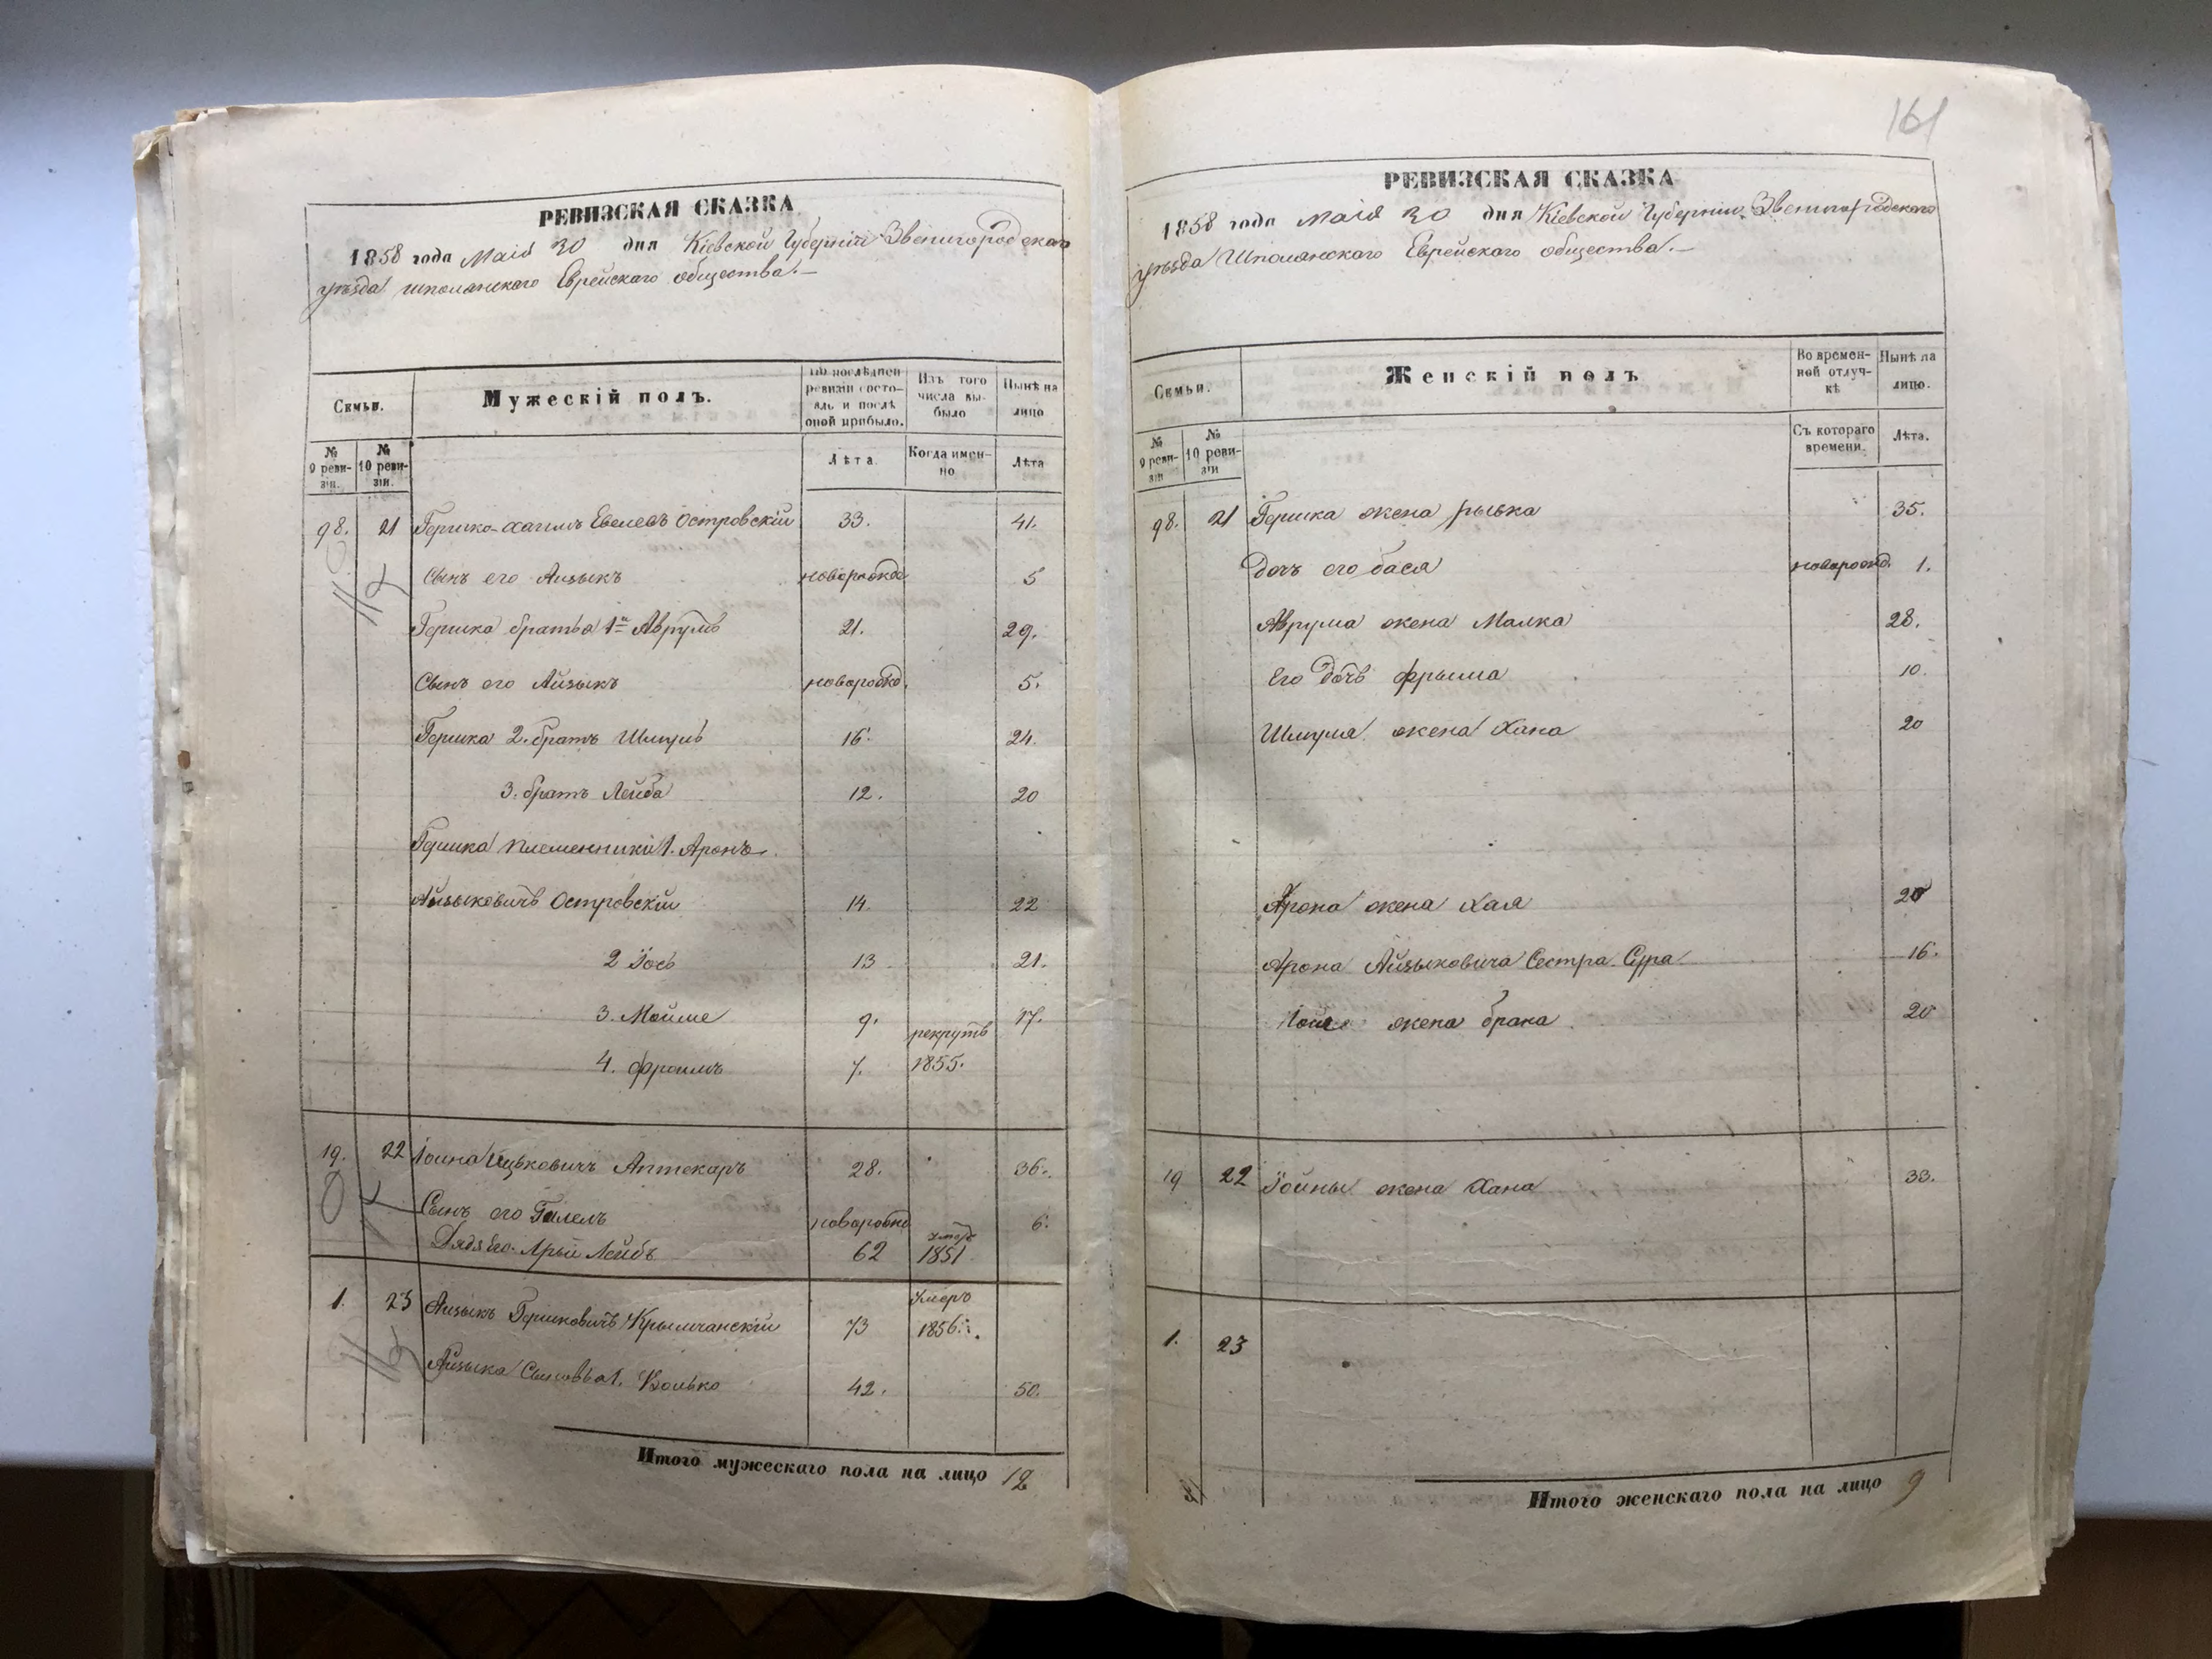 РЕВИЗСКАЯ СКАЗКА
1858 года Маія 30 дня Кіевской Губерніи Звенигородскаго
уѣзда шполянскаго Еврейскаго общества.—
Семьи.
Мужескій полъ.
По послѣдней ревизіи состояло и послѣ оной прибыло.
Изъ того числа выбыло
Нынѣ на лицо
№ 9 ревизіи.
№ 10 ревизіи.
Лѣта.
Когда именно
Лѣта
98. 21 Гершко-хаимъ Евелевъ Островскій 33. 41.
Сынъ его Аизыкъ новорожде 5
Гершка братья 1й Аврумъ 21. 29.
Сынъ его Айзыкъ новорожд. 5.
Гершка 2. братъ Шмуль 16. 24.
3. братъ Лейба 12. 20
Гершка племенники 1. Аронъ
Айзыковичъ Островскій 14. 22
2 Іось 13 21.
3. Мойше 9. 17.
4. Фроимъ 7. рекрутъ 1855.
19. 22 Іоина Ицьковичъ Аптекаръ 28. 36.
Сынъ его Гилелъ новорожд 6.
Дядя Его Арый Лейбъ 62 умеръ 1851
1. 23 Аизыкъ Гершковичъ Крымчанскій 73 умеръ 1856.
Айзыка Сыновья 1. Волько 42. 50.
Итого мужескаго пола на лицо 12
161
РЕВИЗСКАЯ СКАЗКА
1858 года Маія 30 дня Кіевской Губерніи Звенигородскаго
уѣзда Шполянскаго Еврейскаго общества.—
Семьи.
Женскій полъ
Во временной отлучкѣ
Нынѣ на лицо.
№ 9 ревизіи
№ 10 ревизіи
Съ котораго времени.
Лѣта.
98. 21 Гершка жена рывка 35.
Дочь его бася новорожд. 1.
Аврума жена Малка 28.
Его дочь фрыма 10.
Шмуля жена Хана 20
Арона жена Хая 20
Арона Айзыковича Сестра Сура 16.
жена брана 20
19 22 Іойны жена Хана 33.
1. 23
Итого женскаго пола на лицо 9